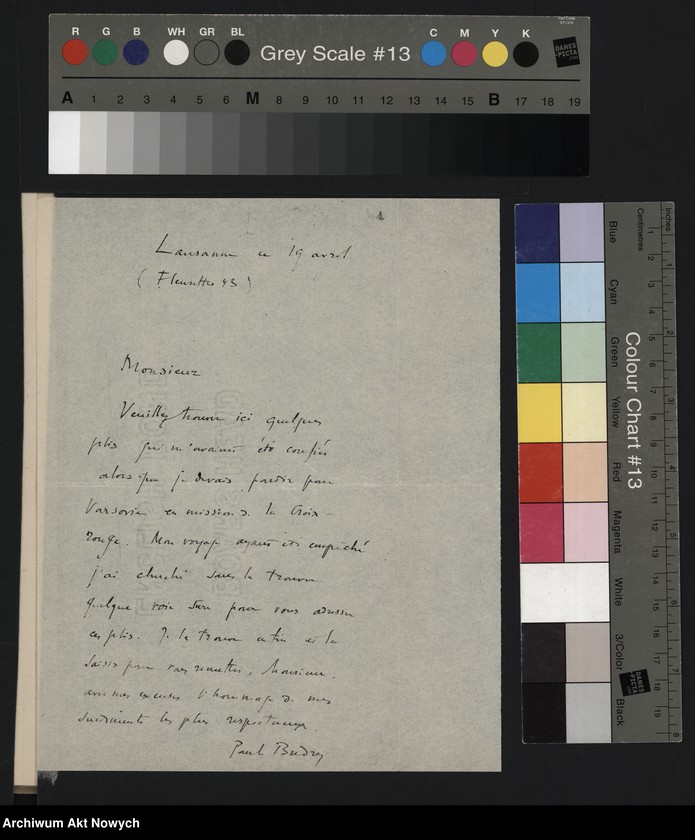 R G B WH GR BL Grey Scale #13 C M Y K DANES-PICTA.COM
A 1 2 3 4 5 6 M 8 9 10 11 12 13 14 15 B 17 18 19
Lausanne ce 19 avril
(Fleurettes 43)
Monsieur
Veuillez trouver ici quelques
plis qui m'avaient été confiés
alors que je devais partir pour
Varsovie en mission d. la Croix-
rouge. Mon voyage ayant été empêché
j'ai cherché sans la trouver
quelque voie sure pour vous adresser
ces plis. Je la trouve enfin et la
saisis pour vous remettre, Monsieur,
avec mes excuses l'hommage de mes
sentiments les plus respectueux.
Paul Budry
Colour Chart #13
Blue
Cyan
Green
Yellow
Red
Magenta
White
3/Color
Black
Centimetres
Inches
1 2 3 4 5 6 7 8 9 10 11 12 13 14 15 16 17 18 19
1 2 3 4 5 6 7 8
Archiwum Akt Nowych